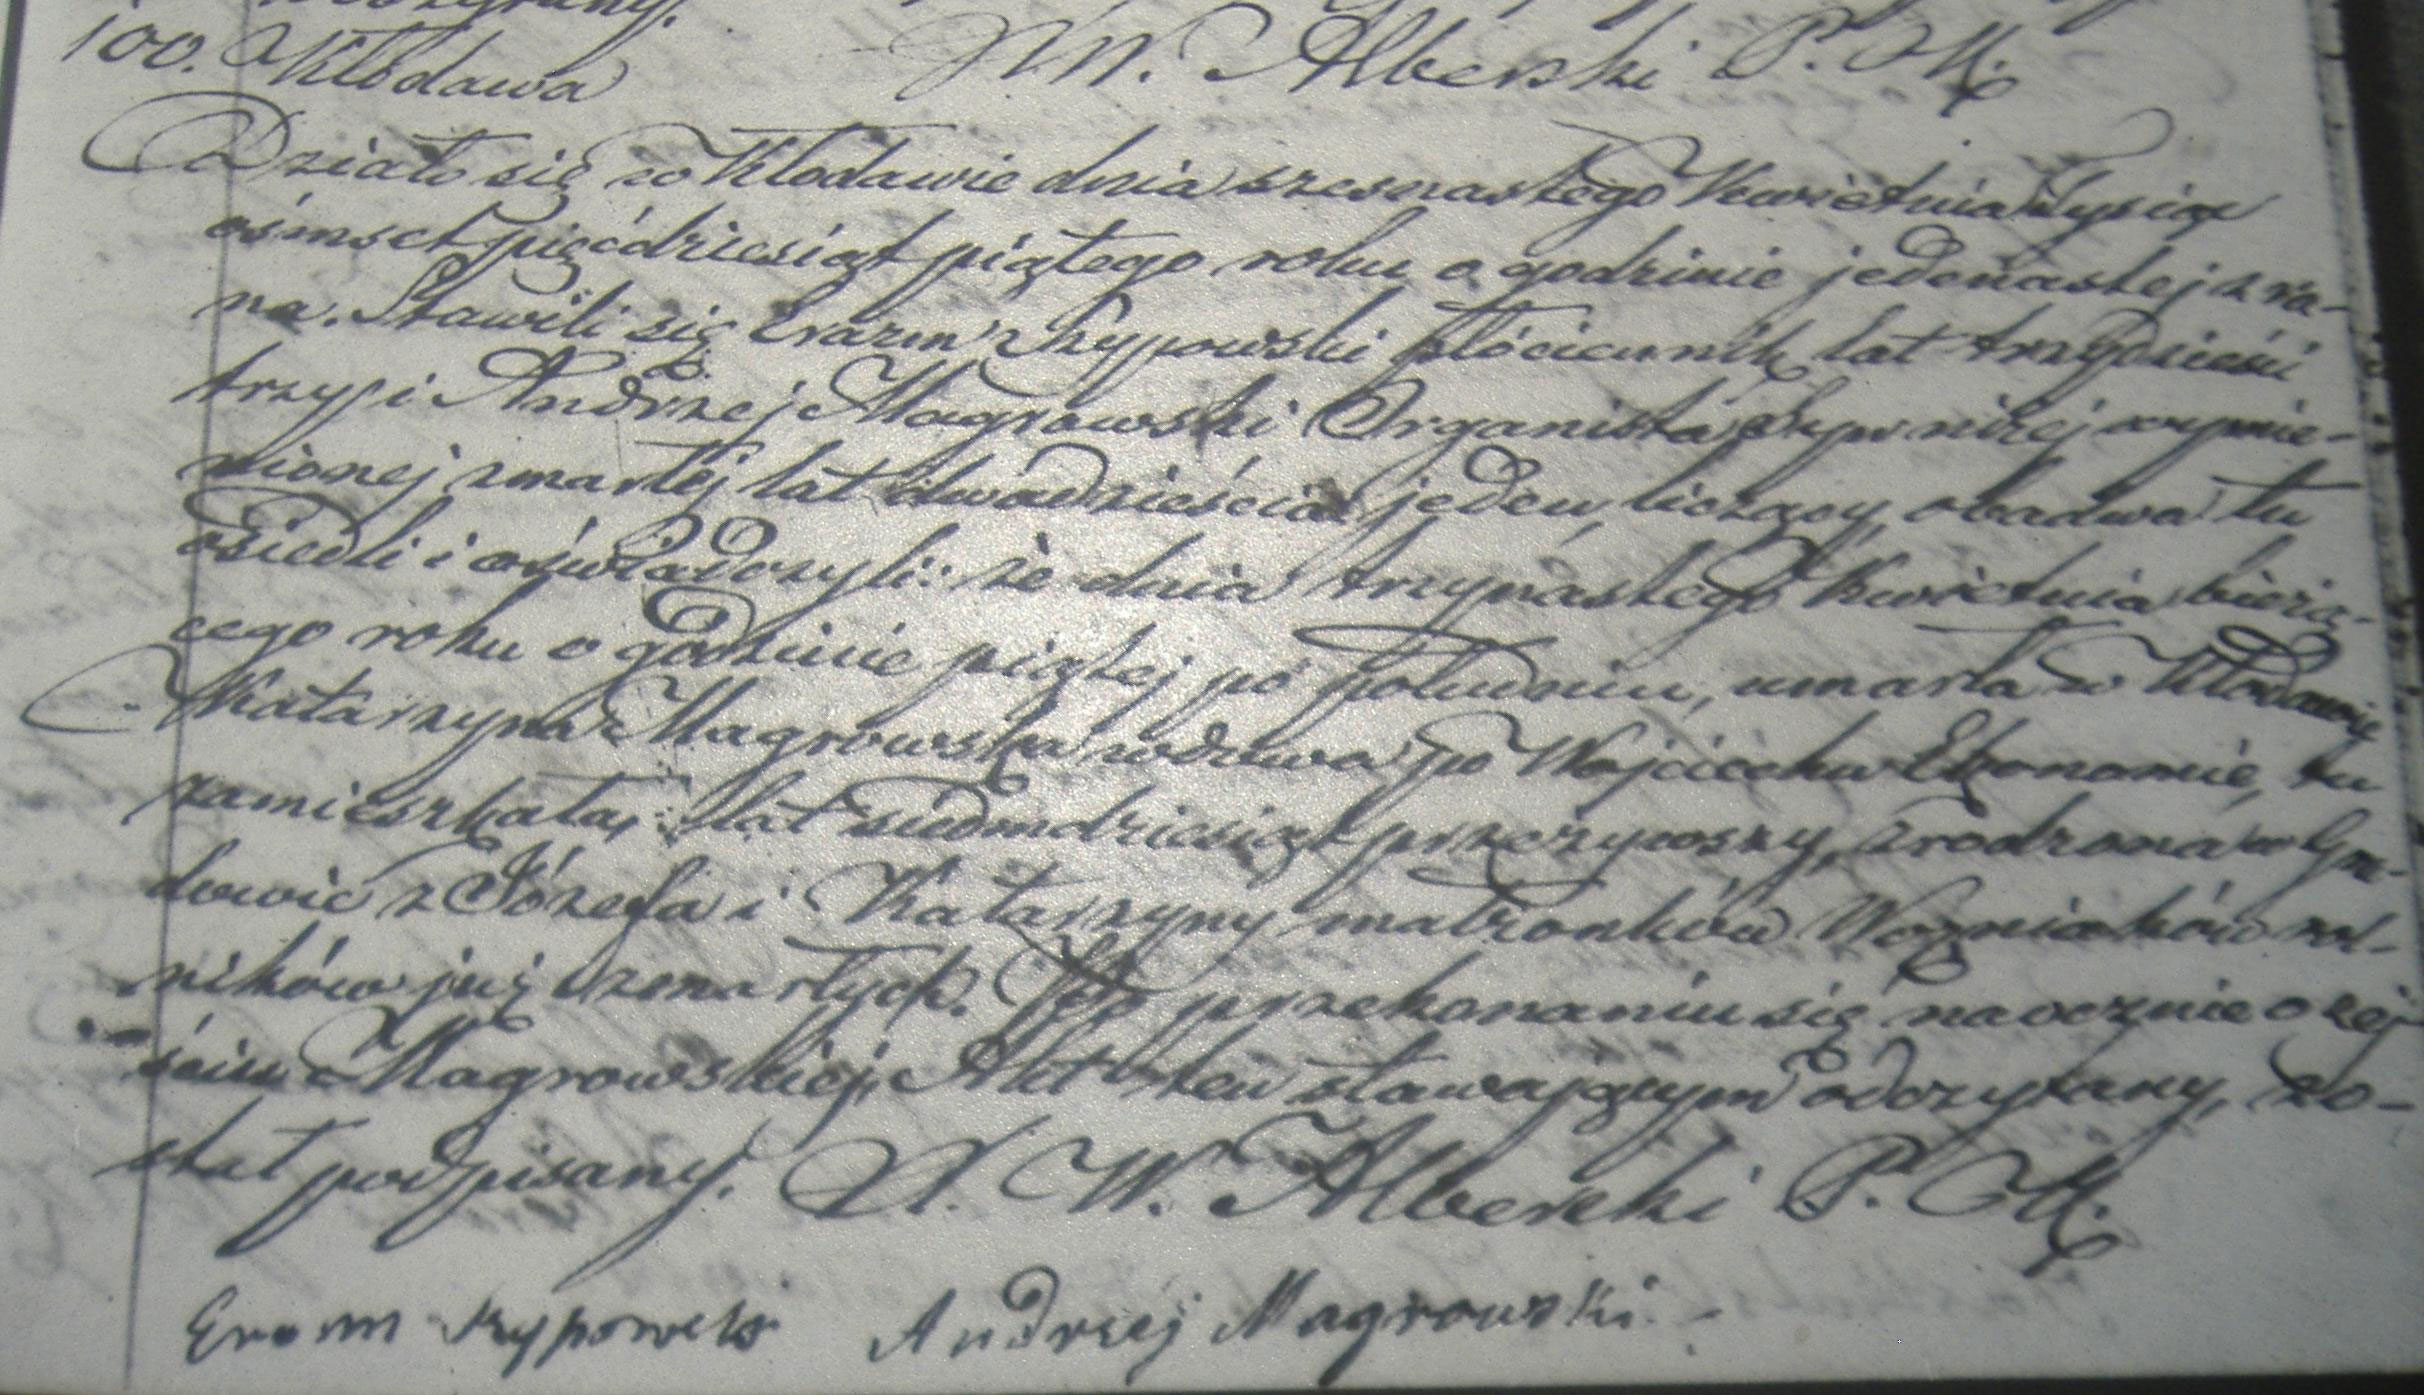 100. Kłodawa
X. W. Alberski P. M.
Działo się w Kłodawie dnia szesnastego Kwietnia tysiąc
ośmset pięćdziesiąt piątego roku o godzinie jedenastej z ra-
na. Stawili się Erazm Skypowski płóciennik lat trzydzieści
trzy i Andrzej Magrowski Organista syn niżej wymie-
nionej zmarłej lat dwadzieścia jeden liczący, obadwa tu
osiedli i oświadczyli: że dnia trzynastego Kwietnia bieżą-
cego roku o godzinie piątej po południu, umarła w Kłodawie
Katarzyna Magrowska wdowa po Wojciechu Ekonomie, tu
zamieszkała, lat siedmdziesiąt przeżywszy, zrodzona w Gra-
dowie z Józefa i Katarzyny małżonków Wozniaków rol-
ników już zmarłych. Po przekonaniu się naocznie o zej-
ściu Magrowskiej, Akt ten stawającym odczytany, zo-
stał podpisany. X. W. Alberski P. M.
Erazm Skypowski Andrzej Magrowski.